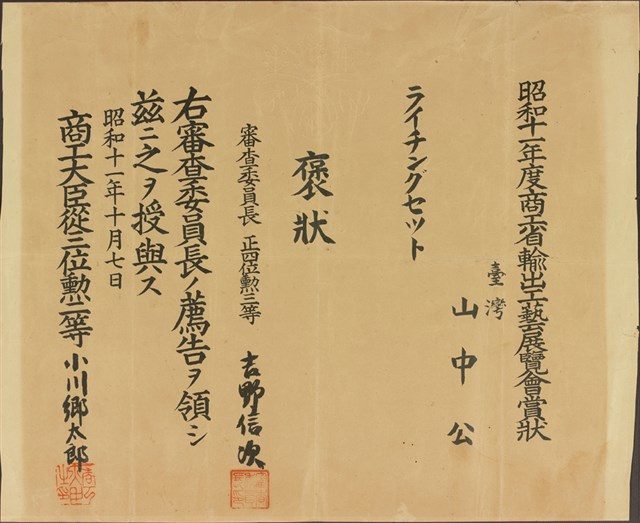 昭和十一年度商工省輸出工藝展覽會賞狀
臺灣
山中公
ライチングセット
褒狀
審査委員長 正四位勲三等 吉野信次
右審査委員長ノ薦告ヲ領シ
茲ニ之ヲ授與ス
昭和十一年十月七日
商工大臣從三位勲二等 小川郷太郎